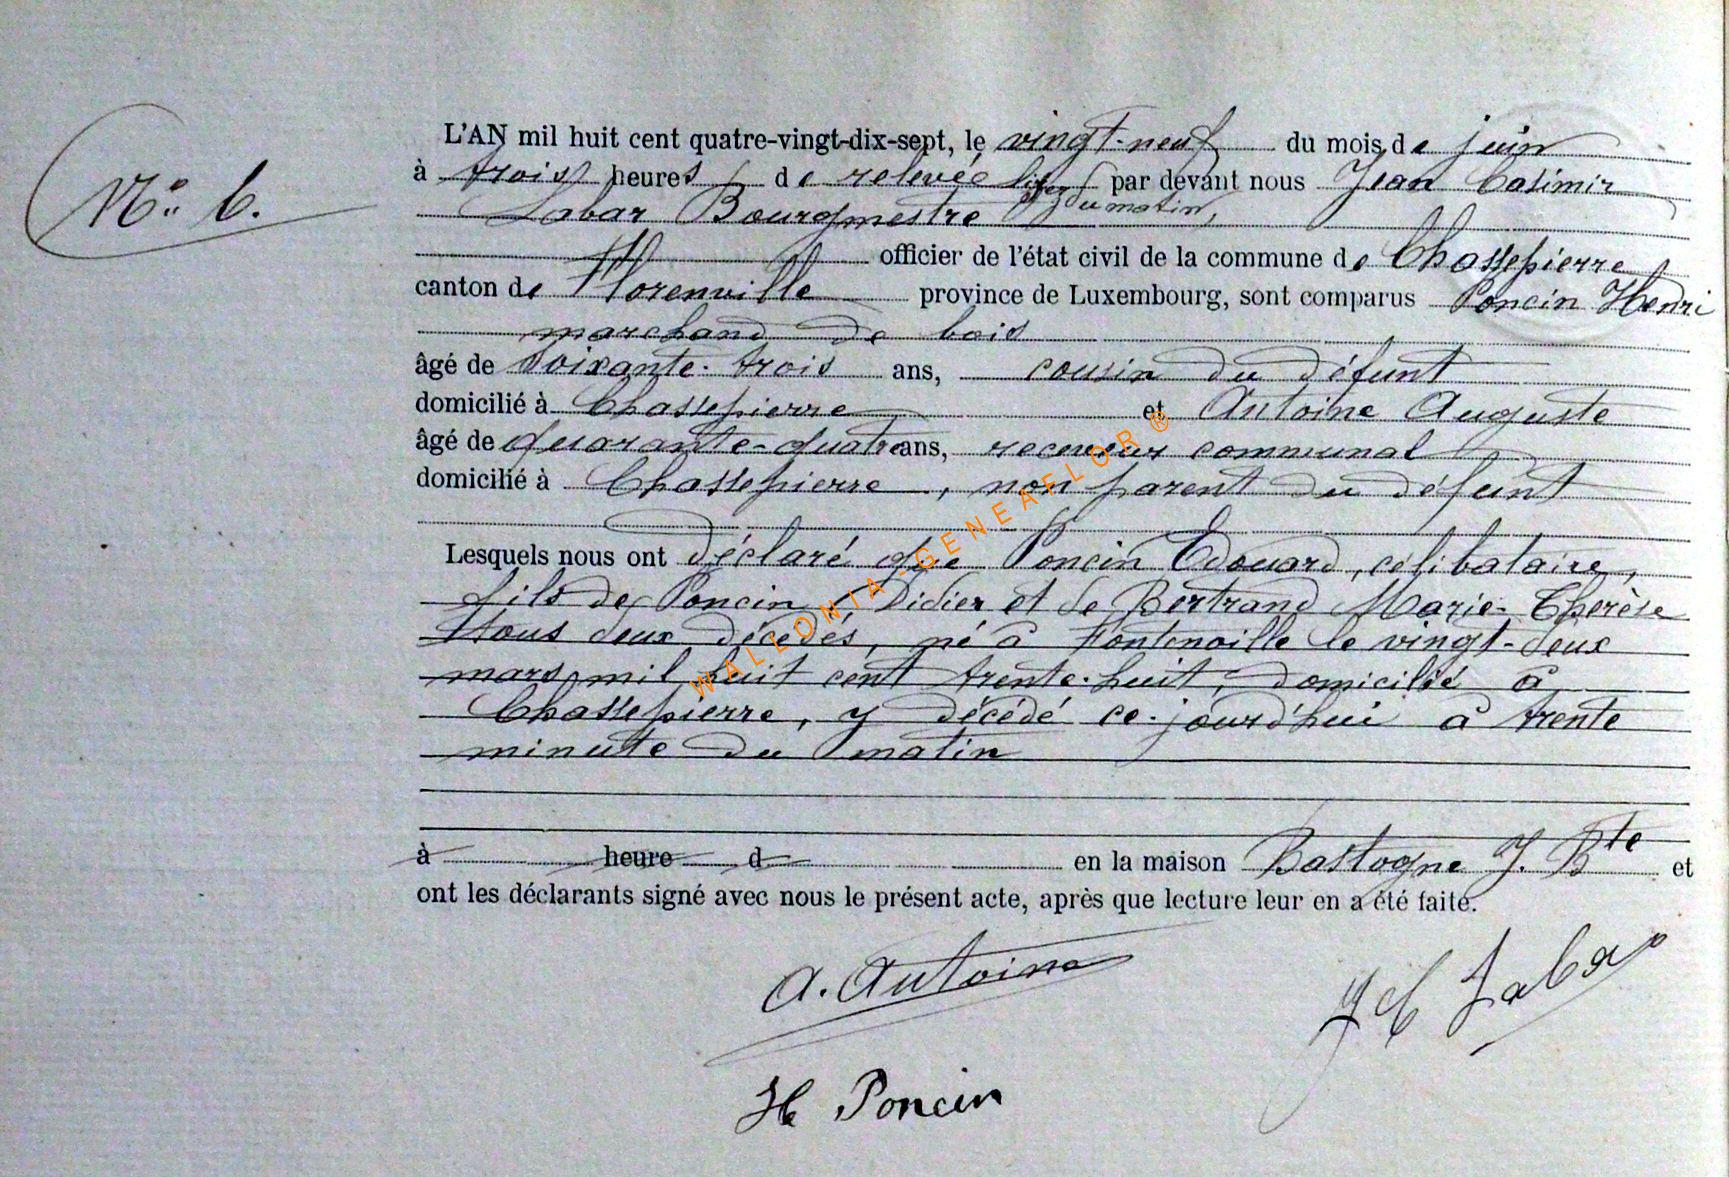 N° 6.
L'AN mil huit cent quatre-vingt-dix-sept, le vingt-neuf du mois de juin
à trois heures de relevée lisez du matin, par devant nous Jean Casimir
Labar Bourgmestre
officier de l'état civil de la commune de Chassepierre
canton de Florenville province de Luxembourg, sont comparus Poncin Henri
marchand de bois
âgé de soixante-trois ans, cousin du défunt
domicilié à Chassepierre et Antoine Auguste
âgé de quarante-quatre ans, receveur communal
domicilié à Chassepierre, non parent du défunt
Lesquels nous ont déclaré que Poncin Edouard, célibataire,
fils de Poncin, Didier et de Bertrand Marie-Therèse
tous deux décédés, né à Fontenoille le vingt-deux
mars mil huit cent trente-huit, domicilié à
Chassepierre, y décédé ce-jourd'hui à trente
minute du matin
à heure d en la maison Bastogne J. Bte et
ont les déclarants signé avec nous le présent acte, après que lecture leur en a été faite.
A. Antoine
JC Labar
H Poncin
WALLONIA-GENEAFLOR ®